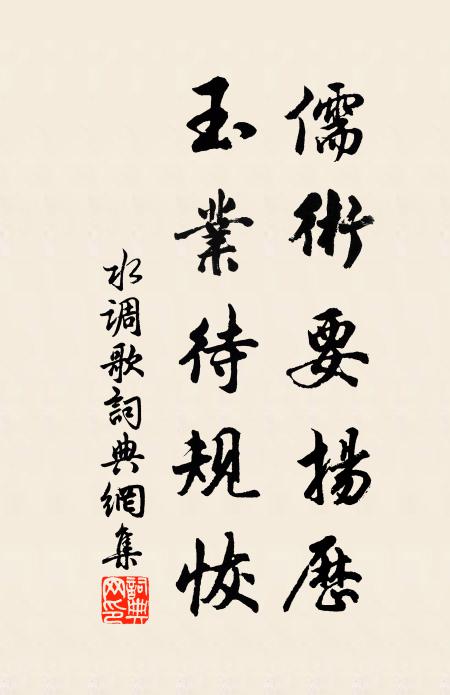 儒術要揚歷
玉業待規恢
水调歌詞典網集
詞典网印